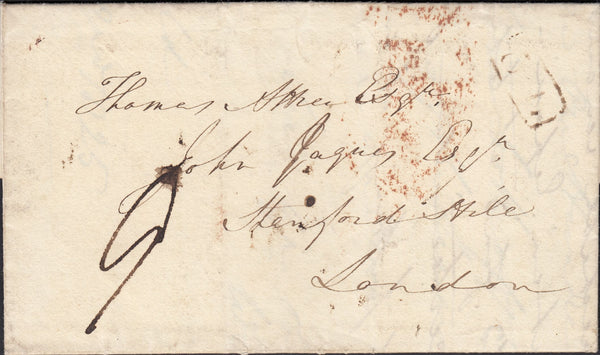 Thomas Attree Esqre.
John Jaques Esqr.
Stamford Hile
London
9